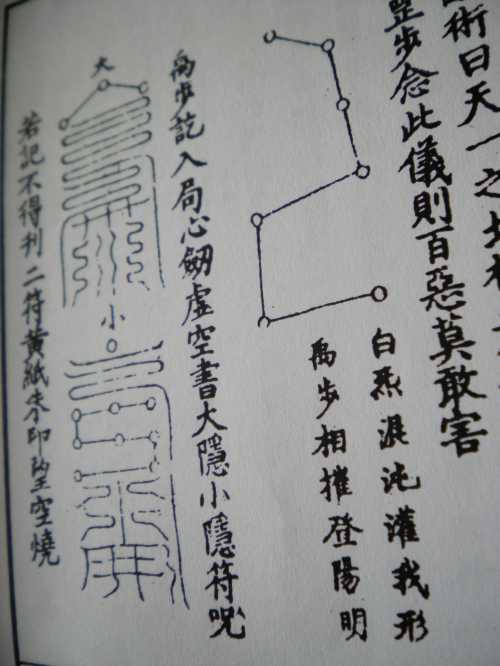 術曰天一之
罡步念此儀則百惡莫敢害
白炁混沌灌我形
禹步相摧登陽明
禹步訖入局心劔虛空書大隱小隱符呪
大
小
若記不得刊二符黃紙朱印望空燒